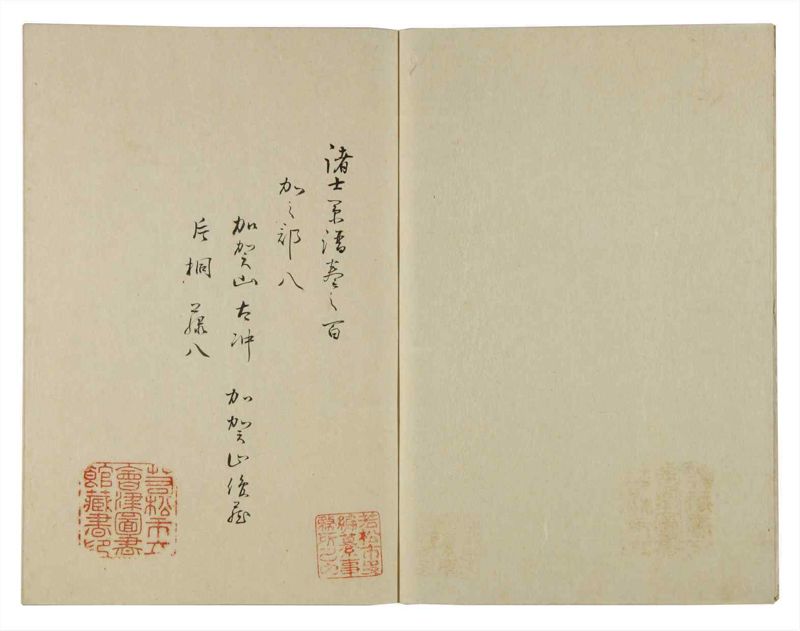 諸士系譜巻之百
加之部八
加賀山左冲　加賀山後蔵
片桐　藤八
若松市立
會津圖書
館藏書印
若松市史
編纂事
務所之印